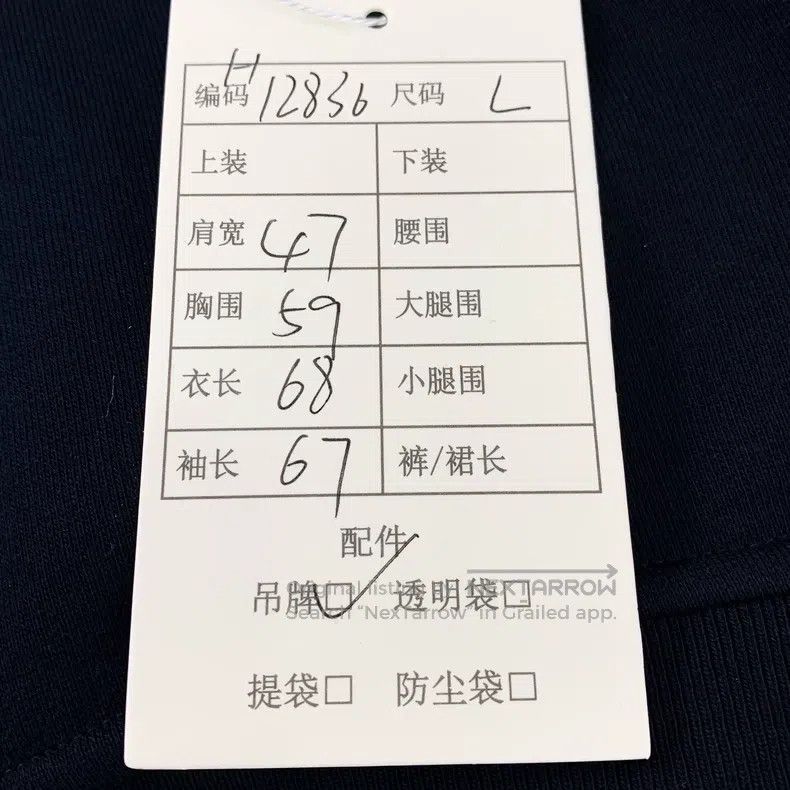 编码 H12836 尺码 L
上装 下装
肩宽 47 腰围
胸围 59 大腿围
衣长 68 小腿围
袖长 67 裤/裙长
配件
吊牌☑ 透明袋□
Original listing by NEXTARROW
Search "NexTarrow" in Grailed app.
提袋□ 防尘袋□